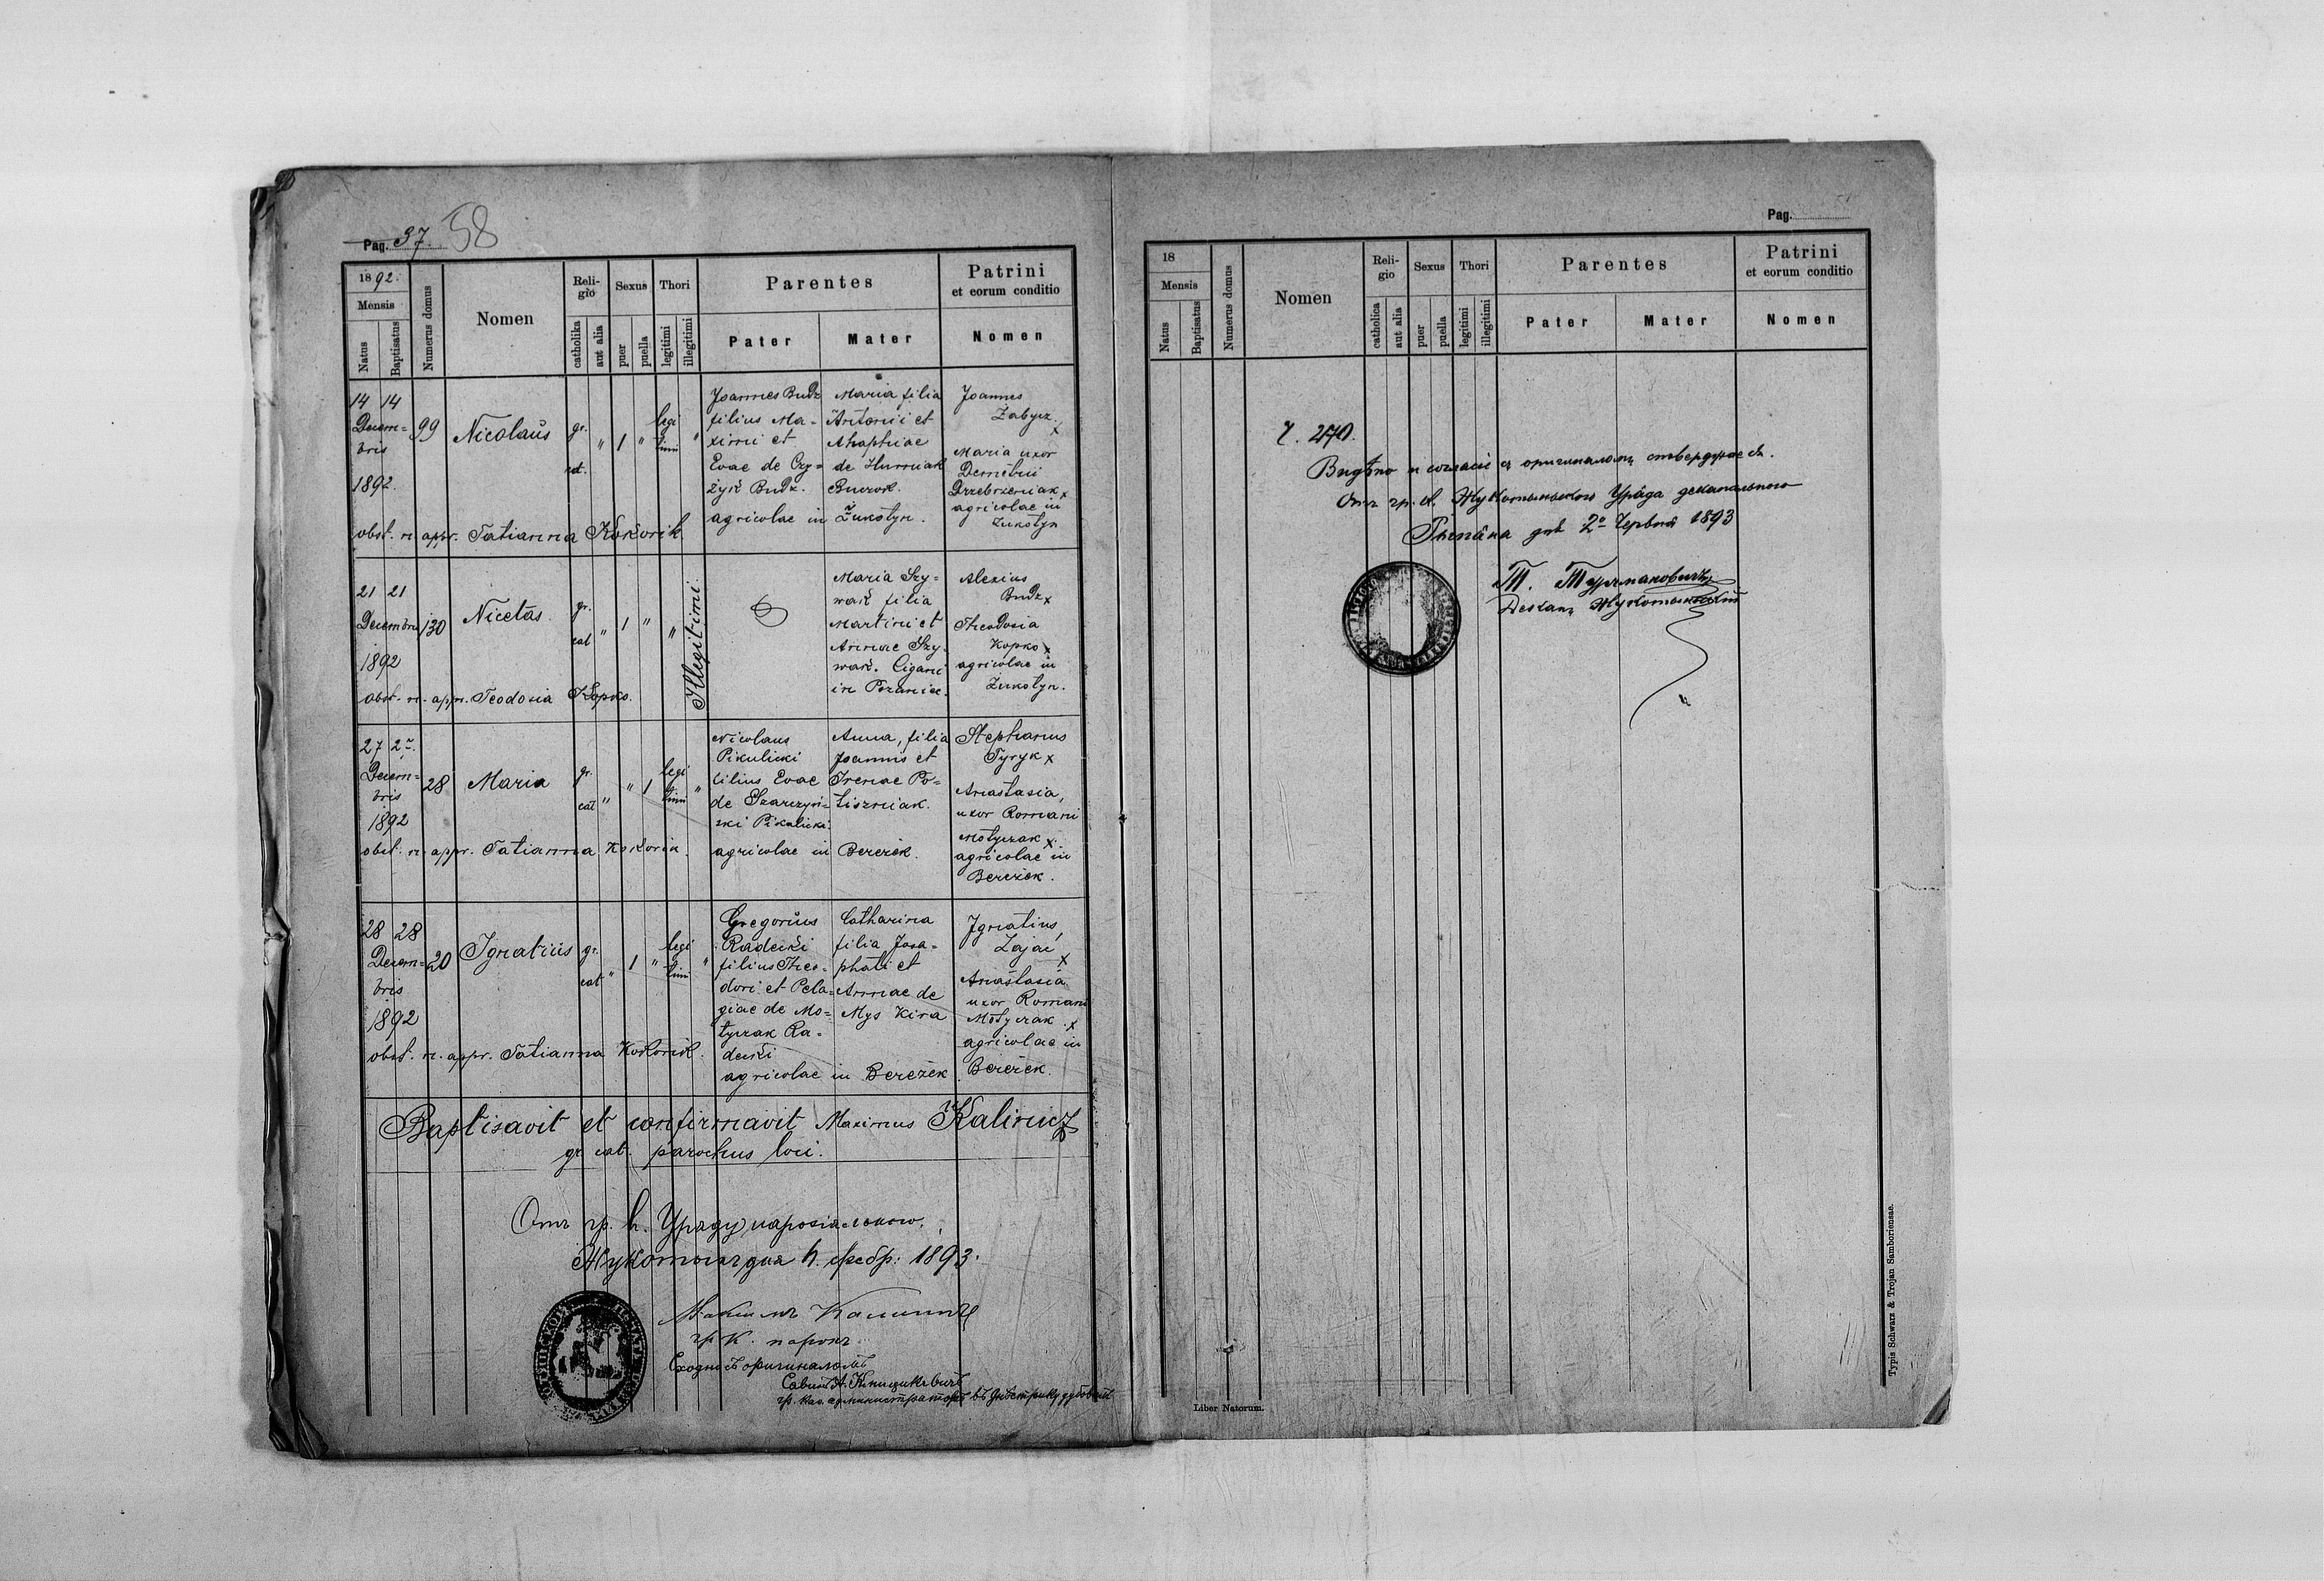 Pag. 37. 58
1892.
Mensis
Natus
Baptisatus
Numerus domus
Nomen
Reli-
gio
catholika
aut alia
Sexus
puer
puella
Thori
legitimi
illegitimi
Parentes
Pater
Mater
Patrini
et eorum conditio
Nomen
14 14
Decem=
bris
1892.
99
Nicolaus
gr.
cat.
" 1 "
legi
timi
"
Joannes Budz
filius Ma-
ximi et
Evae de Czy=
żyk Budz.
agricolae in
Maria filia
Antonii et
Ahaphiae
de Hurniak
Żukotyn.
Joannes
x
Maria uxor
Demetrii
x
agricolae in
Żukotyn
obst. n. appr. Tatianna Kokorik
21 21
Decembris
1892
130
Nicetas.
gr.
cat
" 1 " "
Illegitimi
Maria Szy=
wak filia
Martini et
Annae Szy-
wak. Cigani
in
Alexius
Budz x
Theodosia
Kopko x
agricolae in
Żukotyn.
obst. n. appr. Teodosia Kopko.
27 2
Decem=
bris
1892
28
Maria
gr.
cat
" " 1
legi
timi
"
Nicolaus
Pikulicki
filius Evae
de
Pikulicki
agricolae in
Anna, filia
Joannis et
Irenae Po=
tiszniak.
Bereżek.
Stephanus
Tyryk x
Anastasia,
uxor Romani
Motyczak x
agricolae in
Bereżek.
obst. n. appr. Tatianna Kokorik.
28 28
Decem=
bris
1892
20
Ignatius
gr.
cat
" 1 "
legi
timi
"
Gregorius
Radecki
filius Theo-
dori et Pela=
giae de Mo=
tyczak Ra-
decki
agricolae in Bereżek
Catharina
filia Josa-
phati et
Annae de
Mys Kira
Ignatius
Zając
x
Anastasia
uxor Romani
Motyczak x
agricolae in
Bereżek.
obst. n. appr. Tatianna Kokorik.
Baptisavit et confirmavit Maximus Kalinicz
gr. cat. parochus loci.
Отъ гр. к. Уряду
Жукотинъ дня фебр: 1893.
гр. к. парохъ
Сходно съ оригиналомъ
Pag.
18
Mensis
Natus
Baptisatus
Numerus domus
Nomen
Reli-
gio
catholica
aut alia
Sexus
puer
puella
Thori
legitimi
illegitimi
Parentes
Pater
Mater
Patrini
et eorum conditio
Nomen
270.
Видѣно и съ оригиналомъ
Отъ гр. к. Уряда деканального
дня 2 Червня 1893
Деканъ
Liber Natorum.
Typis Schwarz & Trojan Samboriensae.